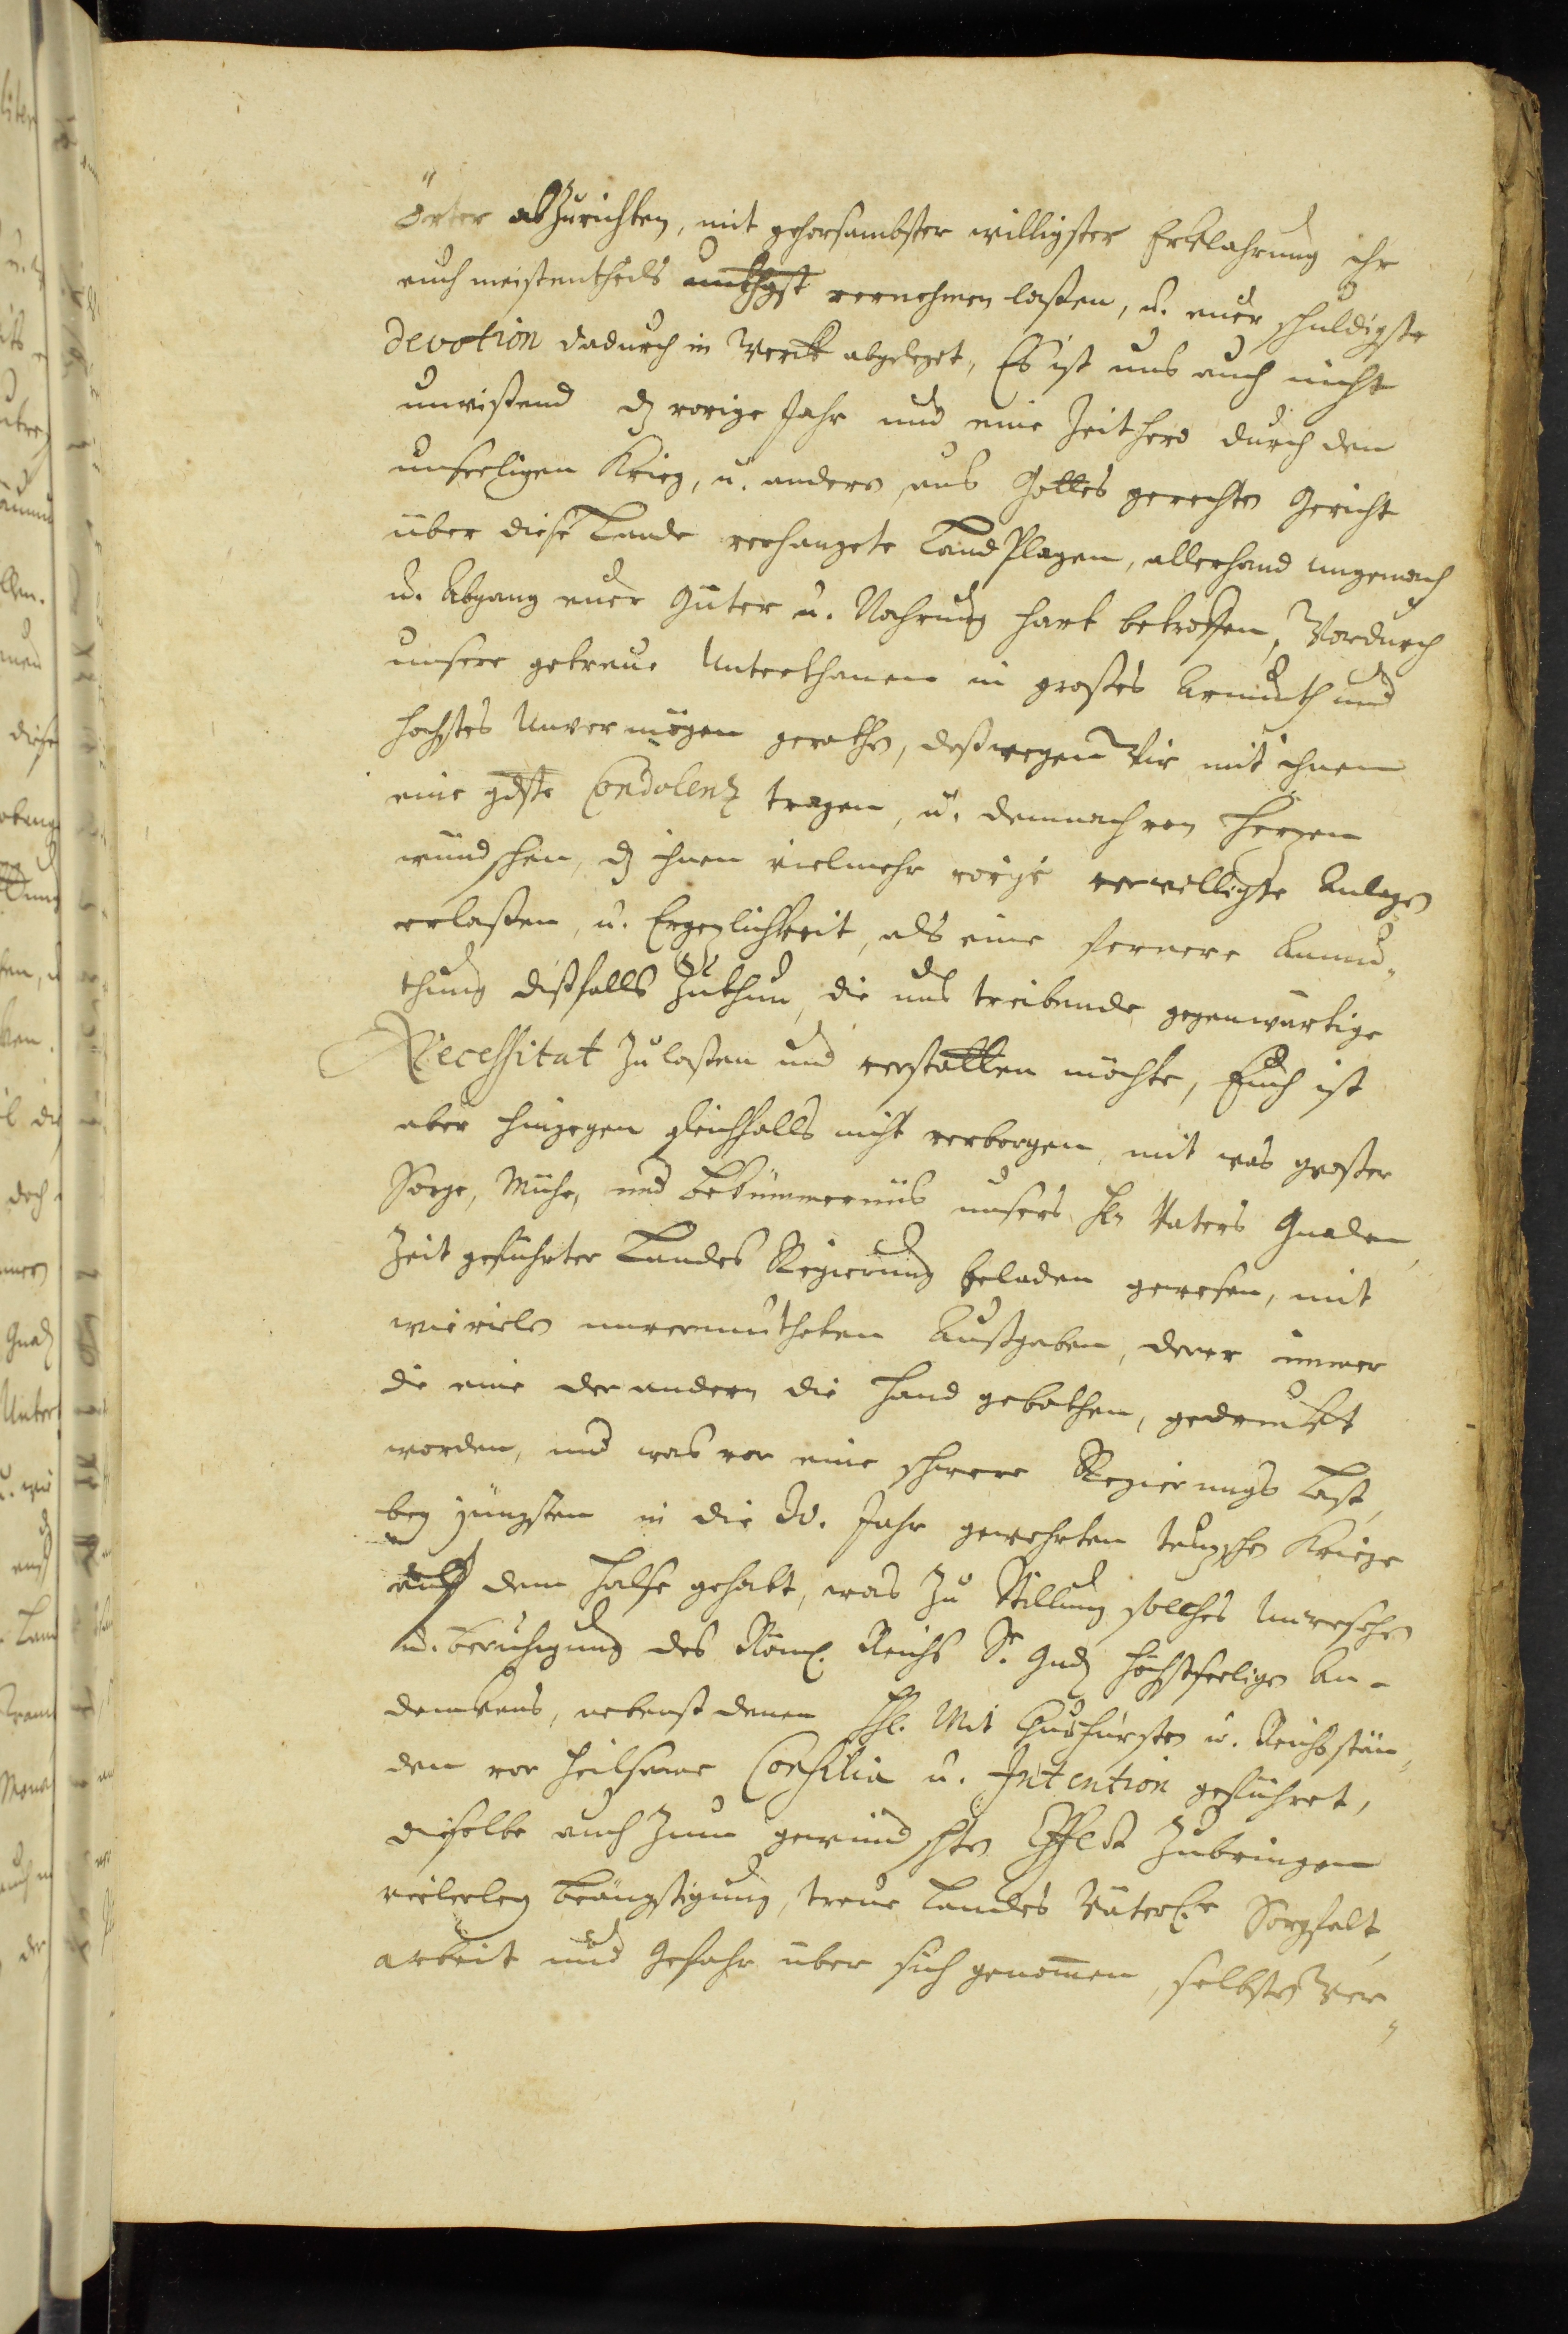 örter abzurichten, mit gehorsambster willigster Erklahrung ihr
euch meistentheils unthgst vernehmen laßen, u. euer schuldigste
Devotion dadurch in Werck abgeleget, Es ist uns auch nicht
unwißend dz vorige Jahr und eine Zeithero durch den
unseeligen Krieg, u. andere aus Gottes gerechten Gericht
über diese Lande verhangete Land Plagen, allerhand ungemach
u. Abgang euer Güter u. Nahrung hart betroffen, Wordurch
unsere getreue Unterthanen in großes Armuth und
hochstes Unvermögen gerathen, deßwegen Wir mit ihnen
eine gdste Condolenz tragen, u. demnach von Herzen
wündschen, dz ihnen vielmehr vorige verwilligte Anlagen
erlaßen, u. Ergezlichkeit, als eine fernere Anmu„
thung dißfalls zuthun, die uns treibende gegenwärtige
Necessitat zulaßen und verstatten möchte, Euch ist
aber hingegen gleichfalls nicht verborgen, mit was großer
Sorge, Mühe, und bekümmernüs unsers Hn Vaters Gnaden,
Zeit geführter Landes Regierung beladen gewesen, mit
wie vielen unvermutheten Außgaben, derer immer
die eine der andern die Hand gebothen, gedruckt
worden, und was vor eine schwere Regierungs Last,
bey jüngsten in die Jahr gewehrten teuzschen Kriege
auff dem Halse gehabt, was zu Stillung solches Unwesens
u. beruhigung des Röm. Reichs Sr. Gndn höchstseeligen An-
denckens, nebenst denen Hl. Mit Churfürsten u. Reichsstän„
den vor heilsame Consilia u. Intention geführet,
dieselbe auch zum gewündschten Effect zubringen
vielerley beängstigung, treue Landes Väterl. Sorgfalt,
arbeit und Gefahr über sich genommen, selbsten Ver„